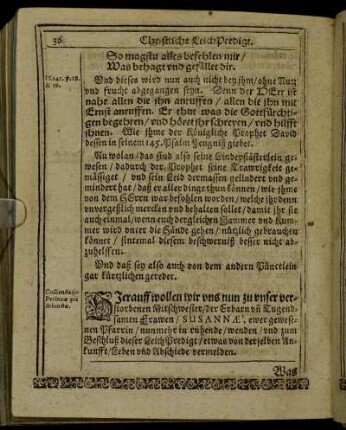 36 Christliche LeichPredigt.
So magstu alles befehlen mir /
Was behagt vnd gefället dir.
Vnd dieses wird nun auch nicht bey jhm / ohne Nutz
vnd frucht abgegangen seyn. Denn der HErr ist
nahe allen die jhn anruffen / allen die jhn mit
Ernst anruffen. Er thut was die Gottsfürchti-
gen begehren / vnd höret jhr schreyen / vnd hilfft
jhnen. Wie jhme der Königliche Prophet David
dessen in seinem 145. Psalm Zeugniß giebet.
Nu wolan / das sind also seine Linde
wesen / dadurch der Prophet seine Trawrigkeit ge-
mässiget / vnd sein Leid dermassen gelindert vnd ge-
mindert hat / daß er aller dinge thun können / wie jhme
von dem HErrn war befohlen worden / welche jhr denn
vnvergeßlich mercken vnd behalten sollet / damit jhr sie
auch einmal / wenn euch dergleichen Jammer vnd Kum-
mer wird vnter die Hände gehen / nützlich gebrauchen
könnet / sintemal diesem beschwerniß besser nicht ab-
zuhelffen.
Vnd daß sey also auch von dem andern Pünctlein
gar kürtzlichen geredet.
HJerauff wollen wir vns nun zu vnser ver-
storbenen Mitschwester / der Erbarn vñ Tugend-
samen Frawen / SUSANNÆ, einer gewese-
nen Pfarrin / nunmehr in ruhende / wenden / vnd zum
Beschluß dieser LeichPredigt / etwas von der selben An-
kunfft / Leben vnd Abschiede vermelden.
Was